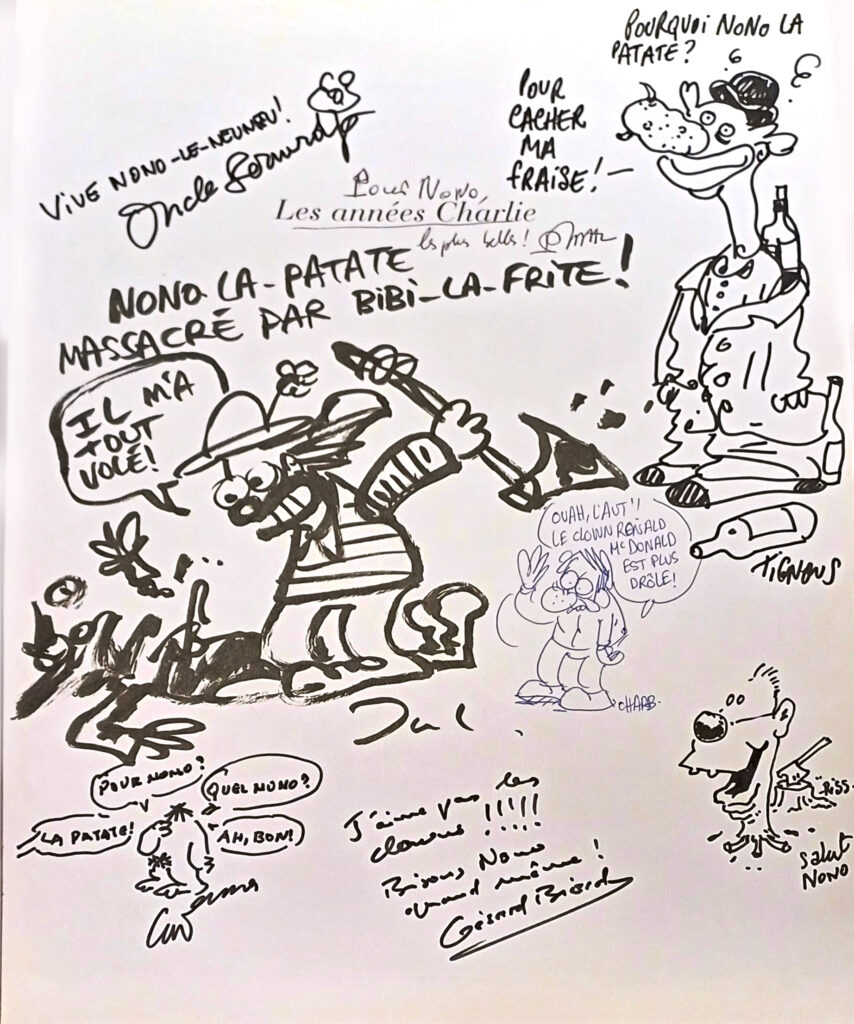 POURQUOI NONO LA
PATATE?
POUR
CACHER
MA
FRAISE!
VIVE NONO-LE-NEUNEU!
Oncle Bernard
Pour Nono,
Les années Charlie
les plus belles!
NONO-LA-PATATE
MASSACRÉ PAR BIBI-LA-FRITE!
IL M'A
TOUT
VOLÉ!
OUAH, L'AUT'!
LE CLOWN RONALD
McDONALD
EST PLUS
DRÔLE!
TIGNOUS
CHARB.
Jul
POUR NONO?
QUEL NONO?
LA PATATE!
AH, BON!
Luz
J'aime pas les
clowns !!!!!
Bisous Nono
quand même!
Gérard Biard
Riss.
Salut
NONO